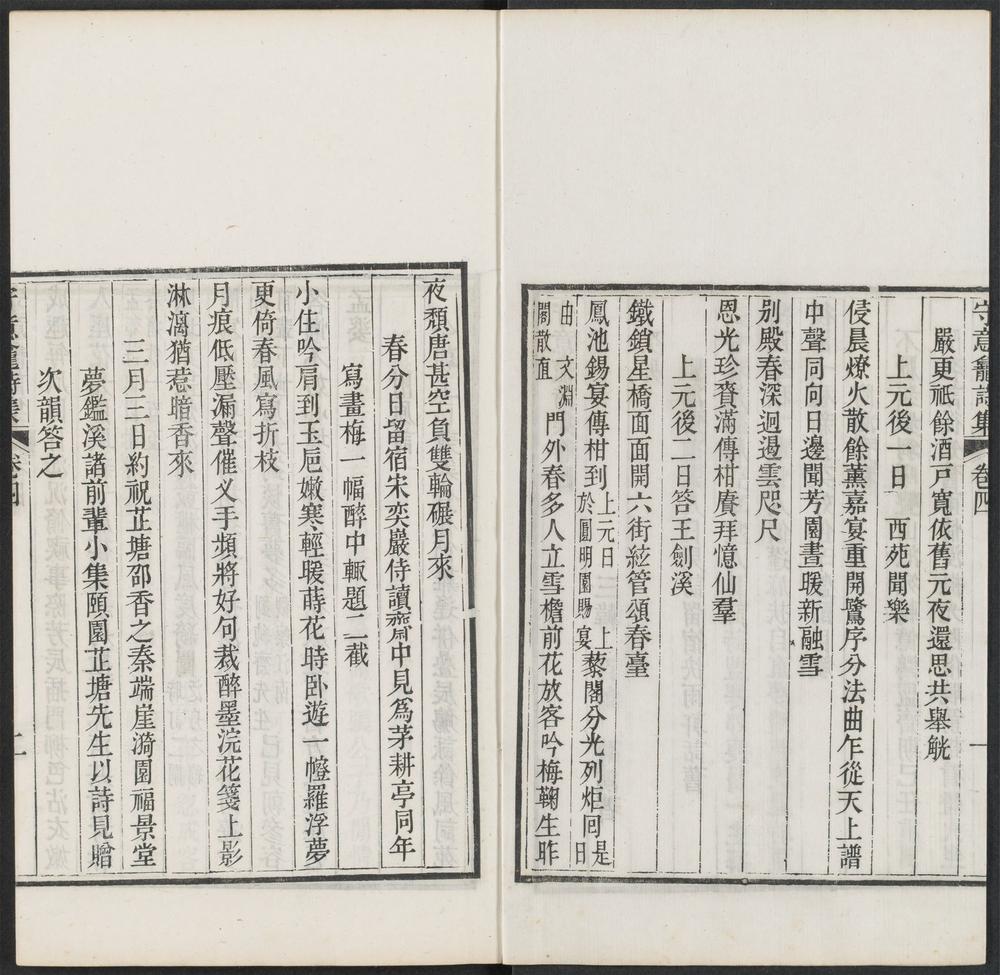 守意龕詩集 卷四
嚴更祇餘酒戸寬依舊元夜還思共舉觥
上元後一日 西苑聞樂
侵晨燎火散餘薰嘉宴重開鷺序分法曲乍從天上譜
中聲同向日邊聞芳園晝暖新融雪
别殿春深迥遏雲咫尺
恩光珍賚滿傳柑賡拜憶仙羣
上元後二日答王劍溪
鐵鎖星橋面面開六街絃管頌春臺
鳳池錫宴傳柑到上元日 上於圓明園賜宴藜閣分光列炬回是日
由 文淵閣散直門外春多人立雪檐前花放客吟梅鞠生昨
夜頹唐甚空負雙輪碾月來
春分日留宿宋奕巖侍讀齋中見爲茅耕亭同年
寫畫梅一幅醉中輒題二截
小住吟肩到玉卮嫩寒輕暖蒔花時卧遊一㡧羅浮夢
更倚春風寫折枝
月痕低壓漏聲催义手頻將好句裁醉墨浣花箋上影
淋漓猶惹暗香來
三月三日約祝芷塘邵香之秦端崖漪園福景堂
夢鑑溪諸前輩小集頤園芷塘先生以詩見贈
次韻答之
守意龕詩集 卷四 二